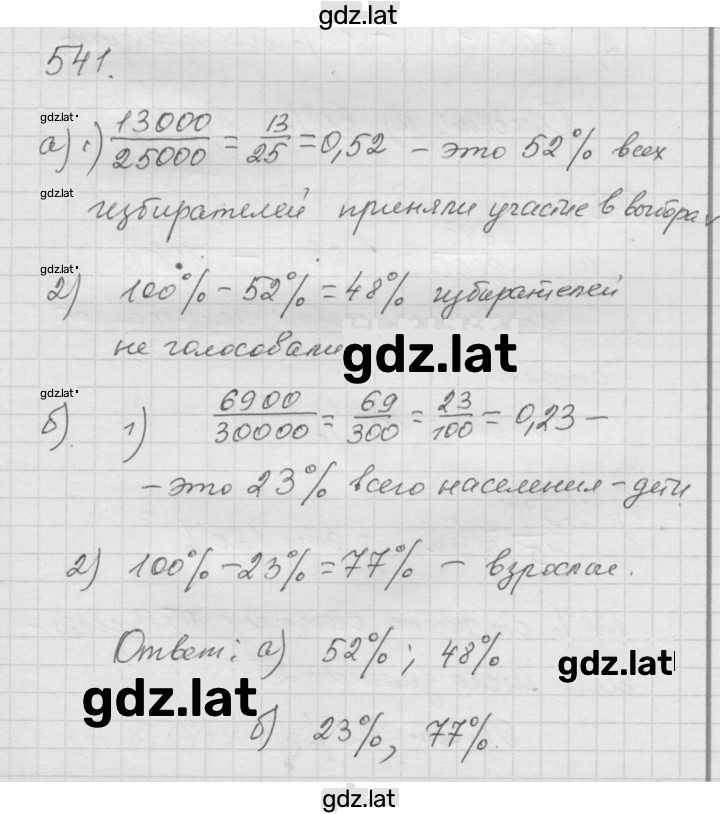 gdz.lat
541.
gdz.lat
а) 1) 13000/25000 = 13/25 = 0,52 – это 52% всех
gdz.lat
избирателей приняли участие в выборах
gdz.lat
2) 100% – 52% = 48% избирателей
не голосовали
gdz.lat
gdz.lat
б). 1) 6900/30000 = 69/300 = 23/100 = 0,23 –
– это 23% всего населения – дети
2) 100% – 23% = 77% – взрослые.
Ответ: а) 52%; 48%
gdz.lat
gdz.lat
б) 23%, 77%.
gdz.lat